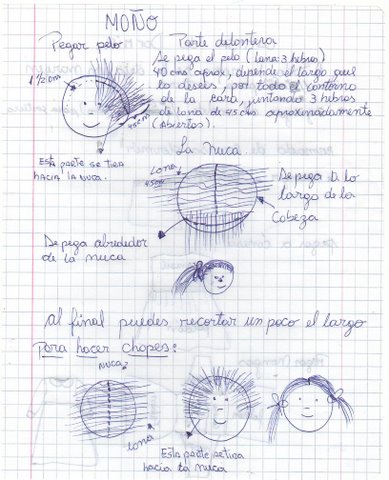 MOÑO
Pegar pelo
Parte delantera
Se pega el pelo (lana: 3 hebras)
40 cms aprox, depende el largo que
lo desees, por todo el contorno
de la cara, juntando 3 hebras
de lana de 45 cms aproximadamente
(Abiertas).
1 1/2 cm
45cm
Esta parte se tira
hacia la nuca.
La nuca
Lana
45cm
Se pega a lo
largo de la
cabeza
Se pega alrededor
de la nuca
Al final puedes recortar un poco el largo
Para hacer chapes:
nuca
Lana
Esta parte se tira
hacia la nuca